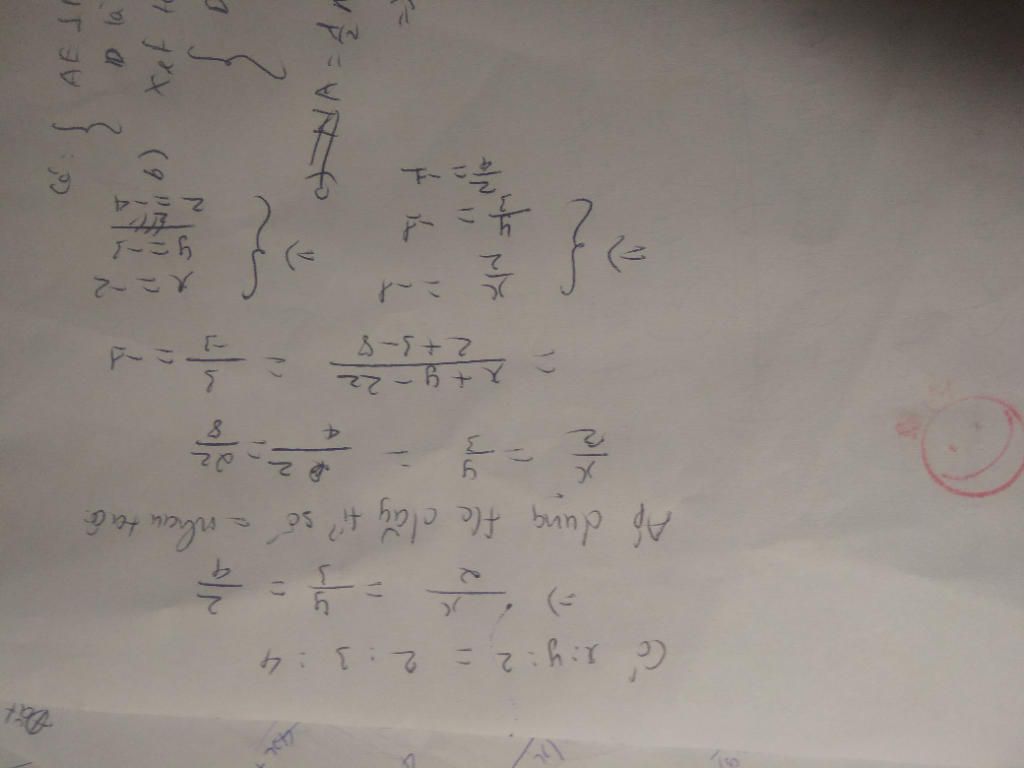 Có x:y:z = 2:3:4
=> x/2 = y/3 = z/4
Áp dụng t/c dãy tỉ số = nhau ta có
x/2 = y/3 = z/4 = 2z/8
= (x+y-2z)/(2+3-8) = 3/-3 = -1
=> { x/2 = -1
y/3 = -1
z/4 = -1
=> { x = -2
y = -3
z = -4
b)
Có: {